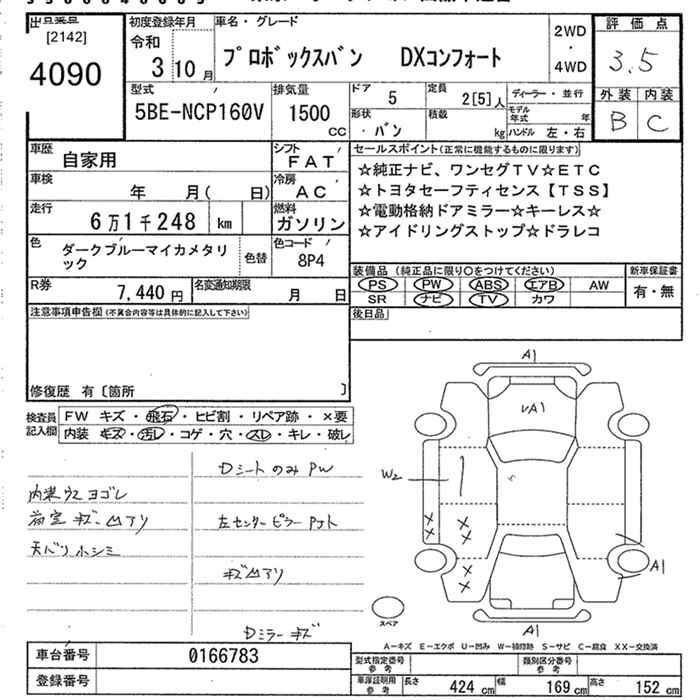 出品番号
[2142]
4090
初度登録年月
令和
3年10月
車名・グレード
プロボックスバン DXコンフォート
2WD
・
4WD
評価点
3.5
外装 内装
B C
型式
5BE-NCP160V
排気量
1500
CC
ドア
5
定員
2[5]人
ディーラー・並行
モデル年式 年
形状
バン
積載
kg
ハンドル 左・右
車歴
自家用
シフト
FAT
車検
年 月( 日)
冷房
AC
走行
6万1千248 km
燃料
ガソリン
色
ダークブルーマイカメタリック
色替
色コード
8P4
R券
7,440円
名変通知期限
月 日
セールスポイント(正常に機能するものに限ります)
☆純正ナビ、ワンセグTV☆ETC
☆トヨタセーフティセンス【TSS】
☆電動格納ドアミラー☆キーレス☆
☆アイドリングストップ☆ドラレコ
装備品(純正品に限り○をつけてください)
PS PW ABS エアB AW
SR ナビ TV カワ
新車保証書
有・無
後日品
注意事項申告欄(不具合内容等は具体的に記入して下さい)
修復歴 有〔箇所 〕
検査員記入欄
FW キズ・飛石・ヒビ割・リペア跡・×要
内装 キズ・汚レ・コゲ・穴・スレ・キレ・破レ
Dシートのみ PW
内装ウスヨゴレ
荷室 キズ・凹アリ
左センターピラー
天バリ小シミ
キズ凹アリ
Dミラー キズ
A1
A1
W2
A1
A1
スペア
A-キズ E-エクボ U-凹み W-補修跡 S-サビ C-腐食 XX-交換済
車台番号
0166783
登録番号
型式指定番号
参考
類別区分番号
参考
車庫証明用
参考
長さ 424 cm 幅 169 cm 高さ 152 cm